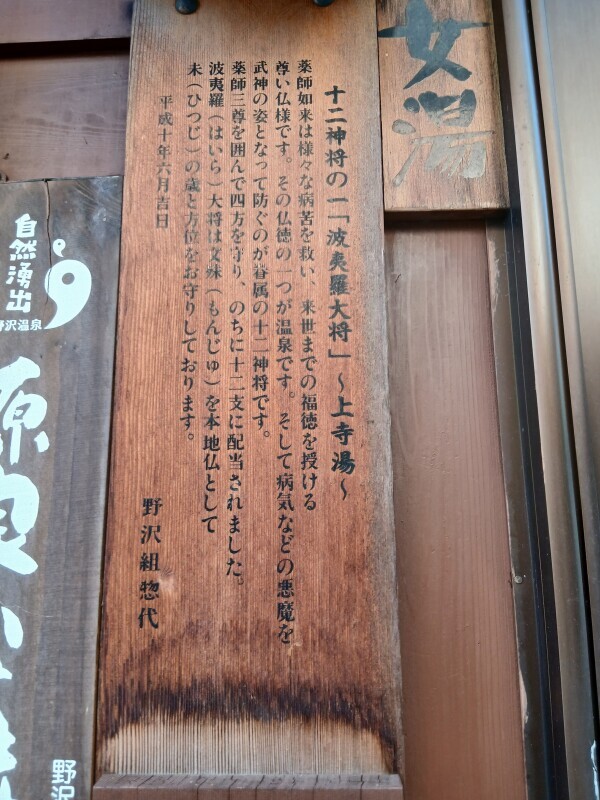 女湯
十二神将の一「波夷羅大将」～上寺湯～
薬師如来は様々な病苦を救い、来世までの福徳を授ける
尊い仏様です。その仏徳の一つが温泉です。そして病気などの悪魔を
武神の姿となって防ぐのが眷属の十二神将です。
薬師三尊を囲んで四方を守り、のちに十二支に配当されました。
波夷羅（はいら）大将は文殊（もんじゅ）を本地仏として
未（ひつじ）の歳と方位をお守りしております。
平成十年六月吉日
野沢組惣代
自然湧出
野沢温泉
源泉
野沢